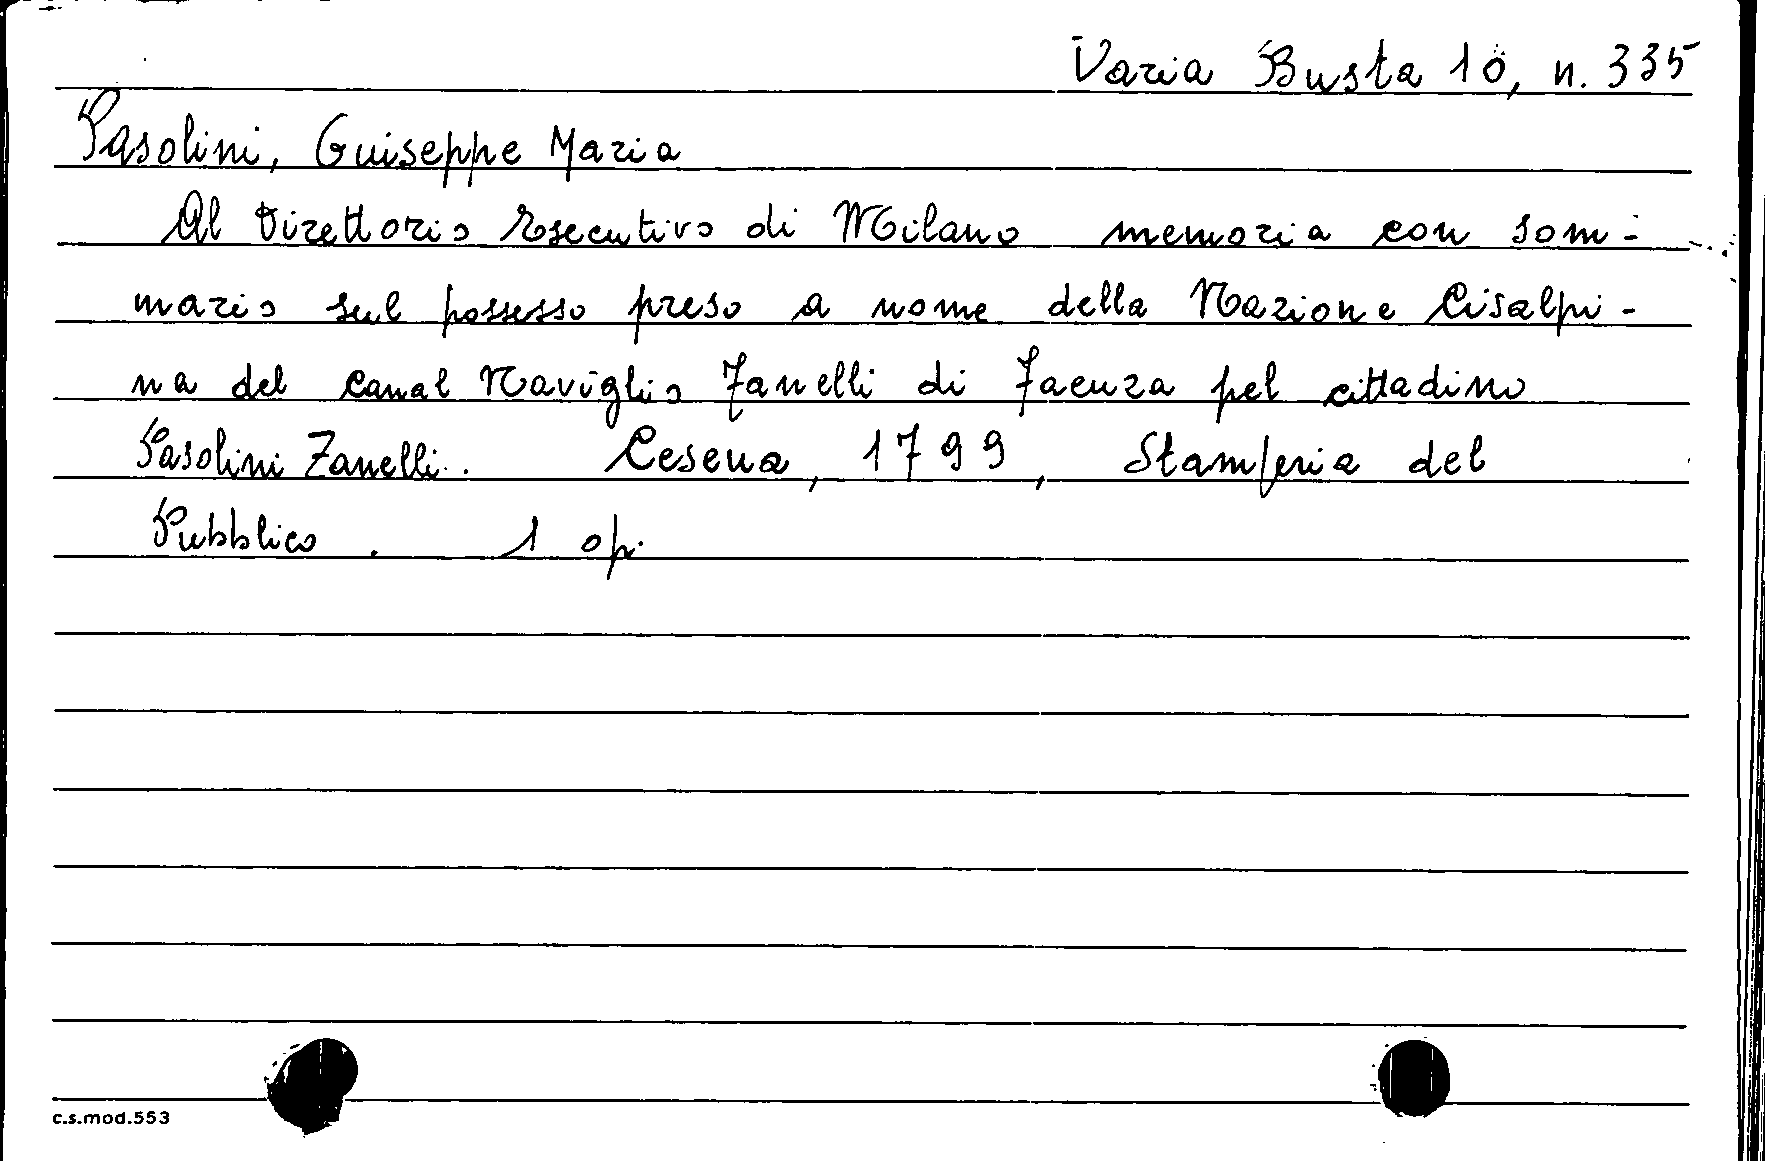 Varia Busta 10, n. 335
Pasolini, Guiseppe Maria
Al Direttorio Esecutivo di Milano memoria con som-
mario sul possesso preso a nome della Nazione Cisalpi-
na del canal Naviglio Zanelli di Faenza pel cittadino
Pasolini Zanelli. Cesena, 1799, Stamperia del
Pubblico. 1 op.
c.s.mod.553